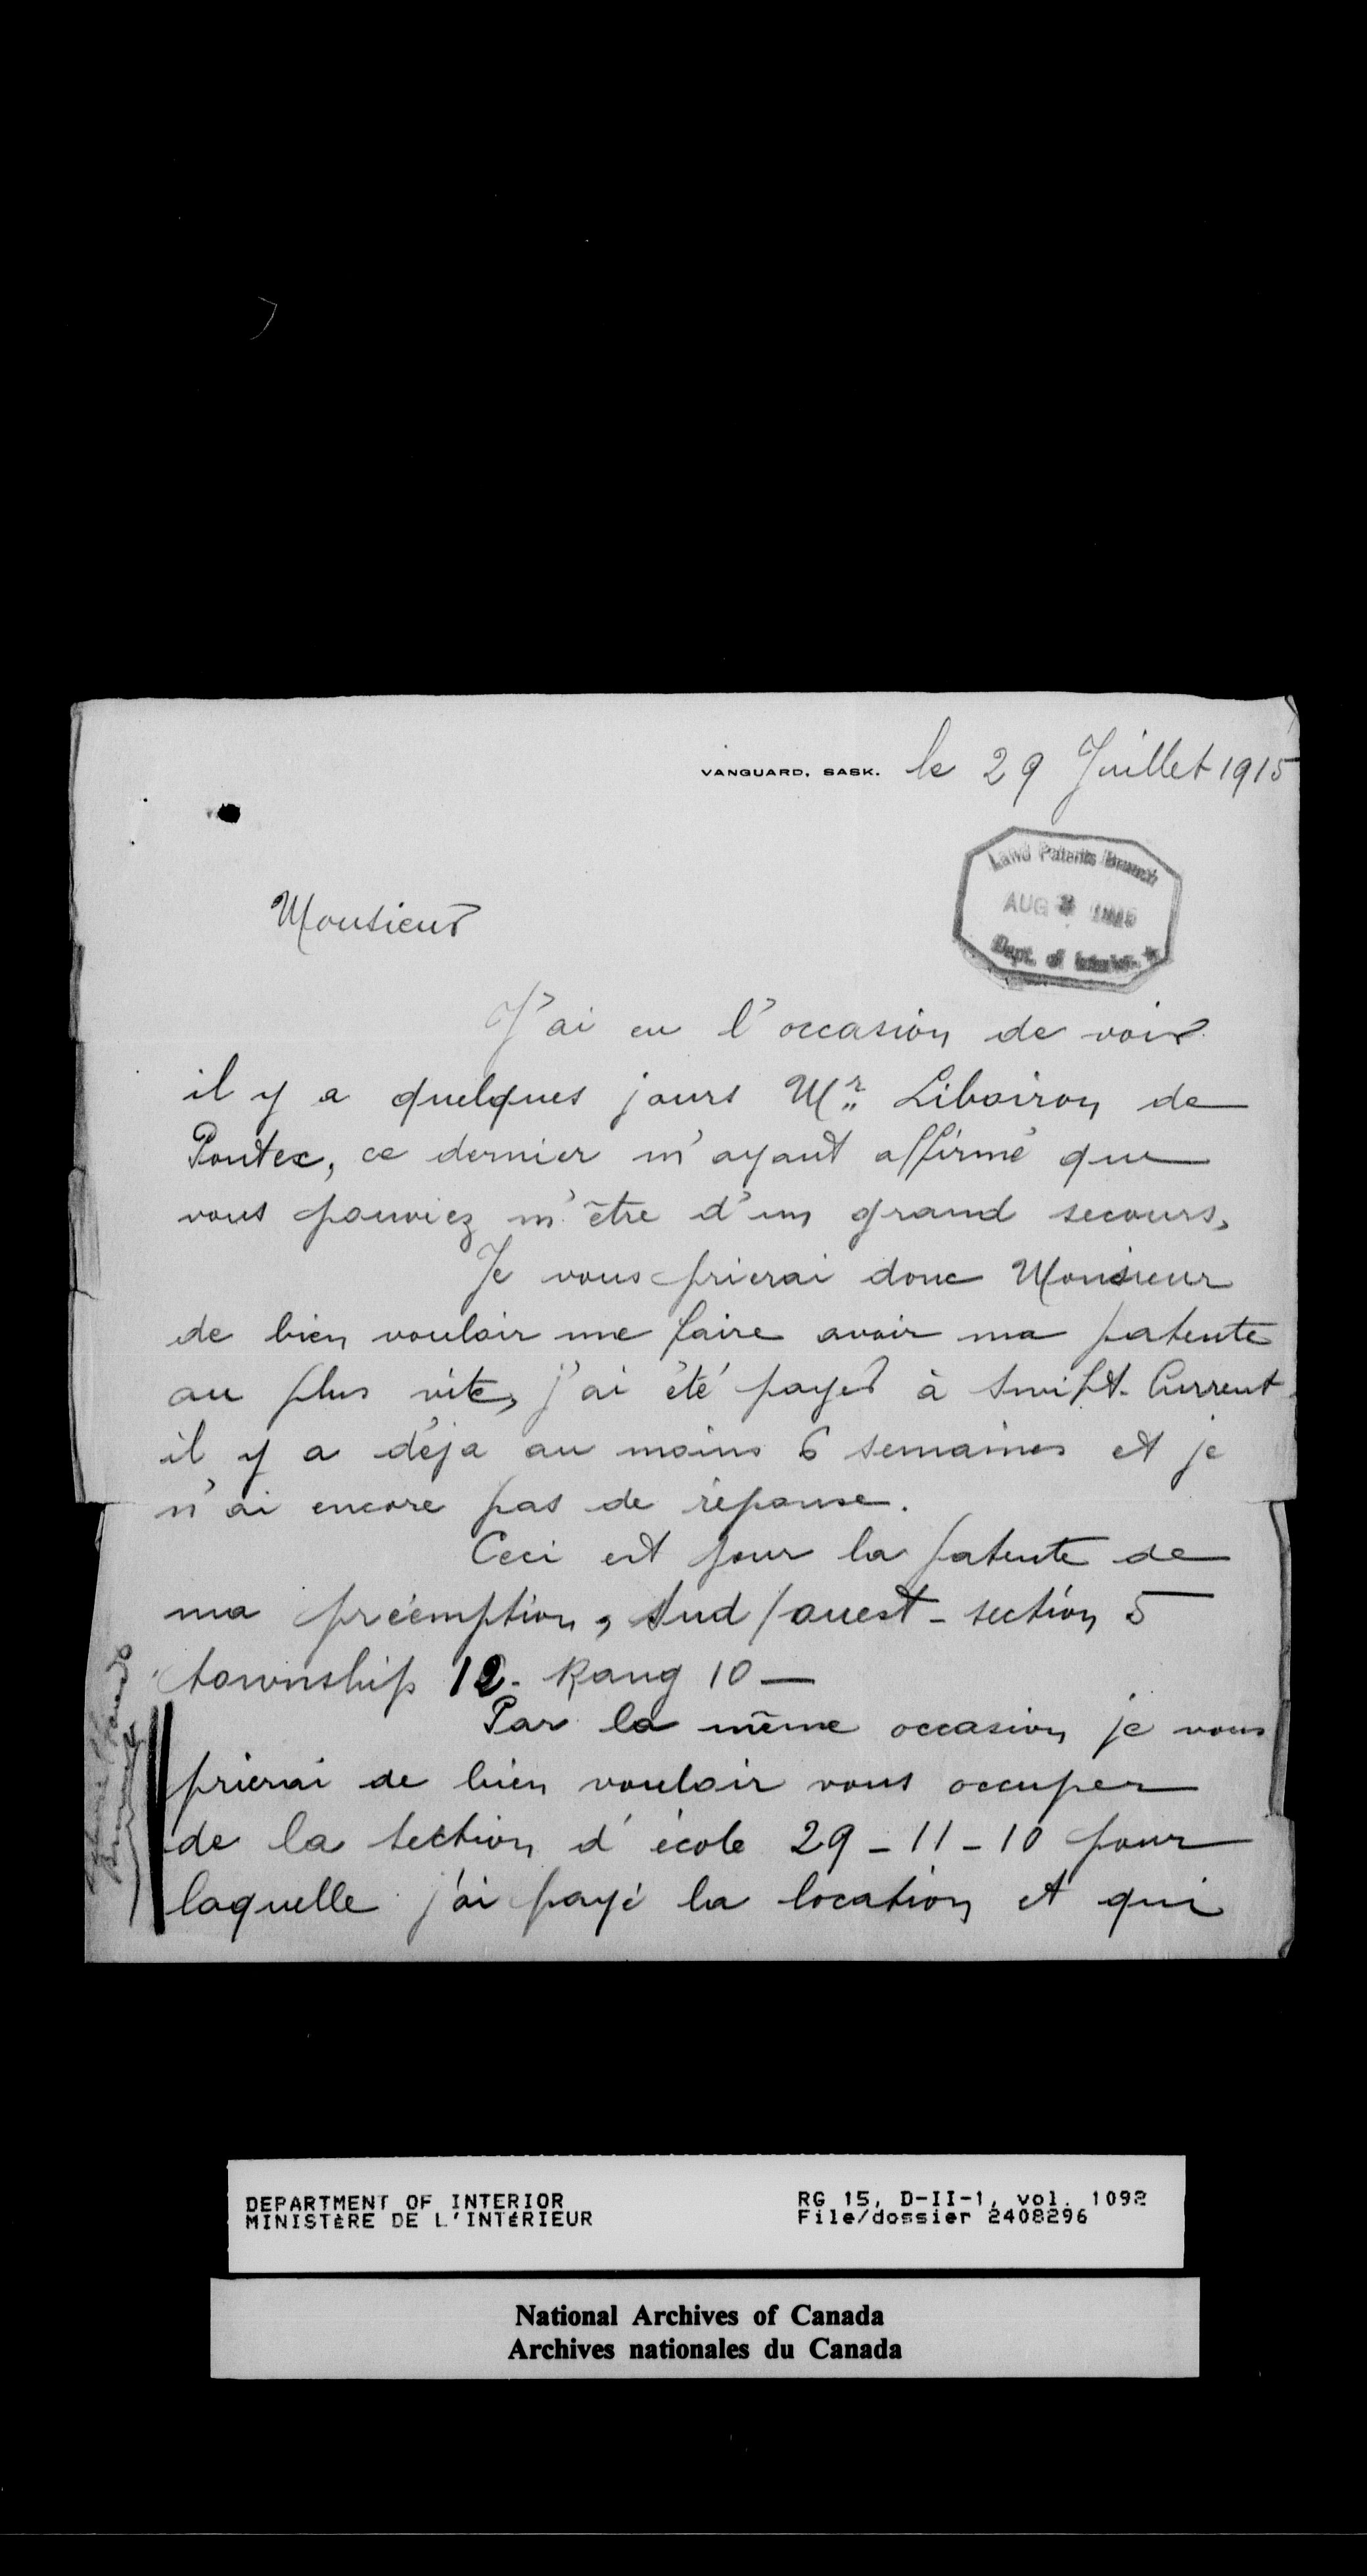 VANGUARD, SASK. le 29 Juillet 1915
Land Patents Branch
AUG 1915
Dept. of Interior
Monsieur
J'ai eu l'occasion de voir
il y a quelques jours Mr. Liboiron de
Pontex, ce dernier m'ayant affirmé que
vous pouviez m'être d'un grand secours,
Je vous prierai donc Monsieur
de bien vouloir me faire avoir ma patente
au plus vite, j'ai été payer à Swift-Current
il y a déja au moins 6 semaines et je
n'ai encore pas de réponse.
Ceci est pour la patente de
ma préemption, Sud/ouest - section 5
township 12 - Rang 10 —
Par la même occasion je vous
prierai de bien vouloir vous occuper
de la section d'école 29 - 11 - 10 pour
laquelle j'ai payé la location et qui
DEPARTMENT OF INTERIOR
MINISTÈRE DE L'INTÉRIEUR
RG 15, D-II-1, vol. 1092
File/dossier 2408296
National Archives of Canada
Archives nationales du Canada